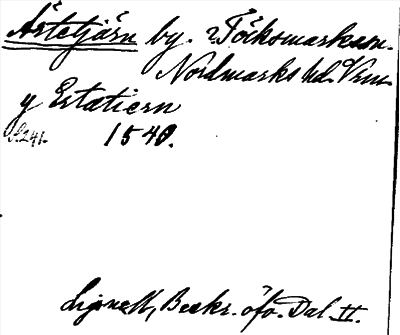 Årtetjärn by. Töcksmarks sn.
Nordmarks hd. Vrm.
y Ertatiern
S. 241. 1540.
Lignell, Beskr. öfv. Dal. II.